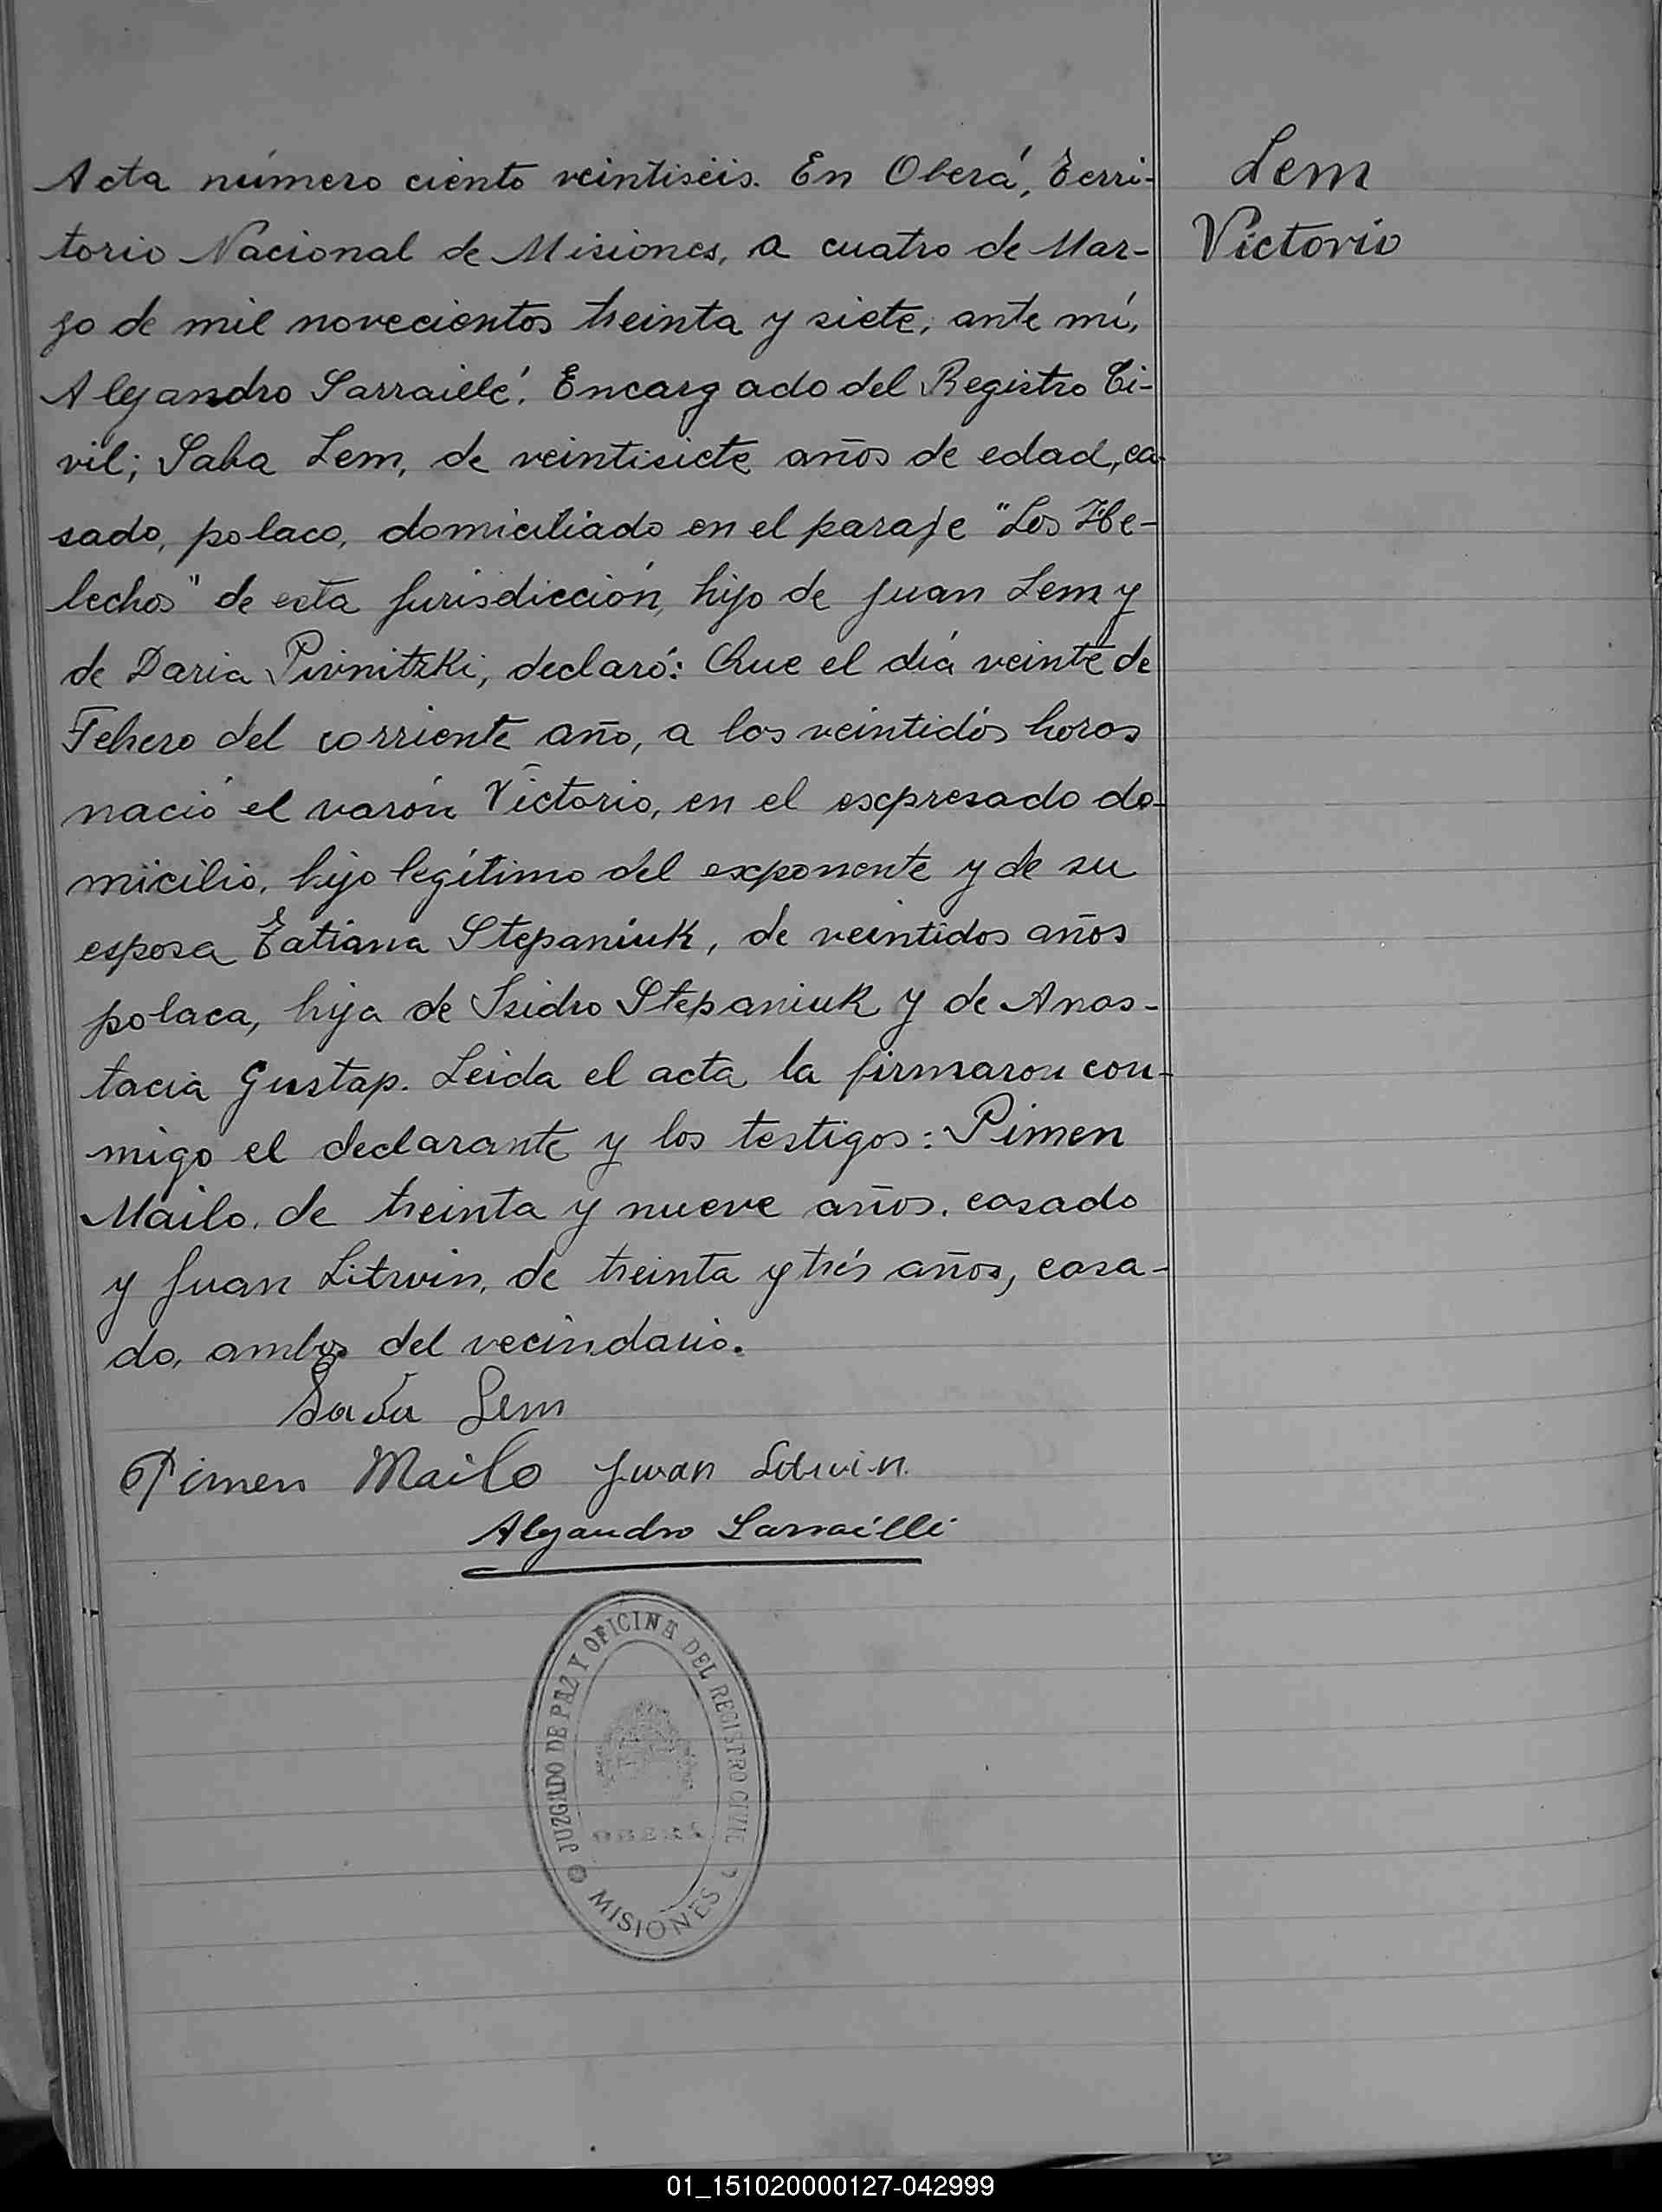 Acta número ciento veintiséis. En Oberá, Terri-
torio Nacional de Misiones, a cuatro de Mar-
zo de mil novecientos treinta y siete, ante mí,
Alejandro Sarraillé. Encargado del Registro Ci-
vil; Saba Lem, de veintisiete años de edad, ca-
sado, polaco, domiciliado en el paraje "Los He-
lechos" de esta jurisdicción, hijo de Juan Lem y
de Daria Pivnitzki, declaró: Que el día veinte de
Febrero del corriente año, a las veintidós horas
nació el varón Victorio, en el expresado do-
micilio, hijo legítimo del exponente y de su
esposa Tatiana Stepaniuk, de veintidos años
polaca, hija de Isidro Stepaniuk y de Anas-
tacia Gustap. Leida el acta la firmaron con-
migo el declarante y los testigos: Pimen
Mailo, de treinta y nueve años, casado
y Juan Litwin, de treinta y trés años, casa-
do, ambos del vecindario.
Lem
Victorio
Lem
Pimen Mailo Juan Litwin.
Alejandro Sarraillé
JUZGADO DE PAZ Y OFICINA DEL REGISTRO CIVIL
OBERÁ
MISIONES
01_151020000127-042999